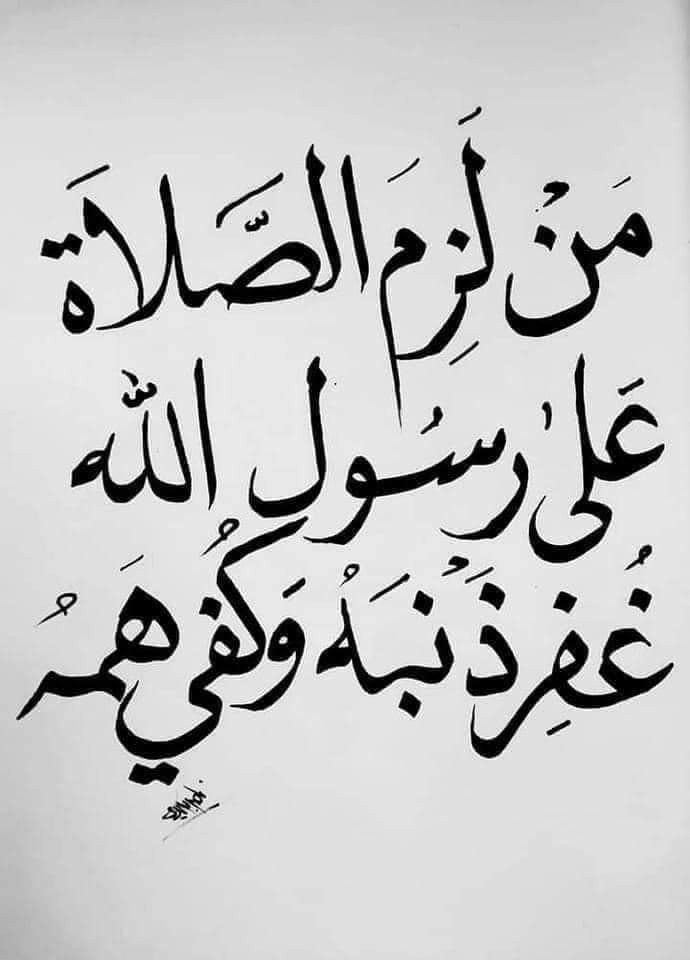 مَنْ لَزِمَ الصَّلَاةَ
عَلىٰ رسُول اللّه
غُفِر ذَنْبَهُ وَكُفي هَمهُ